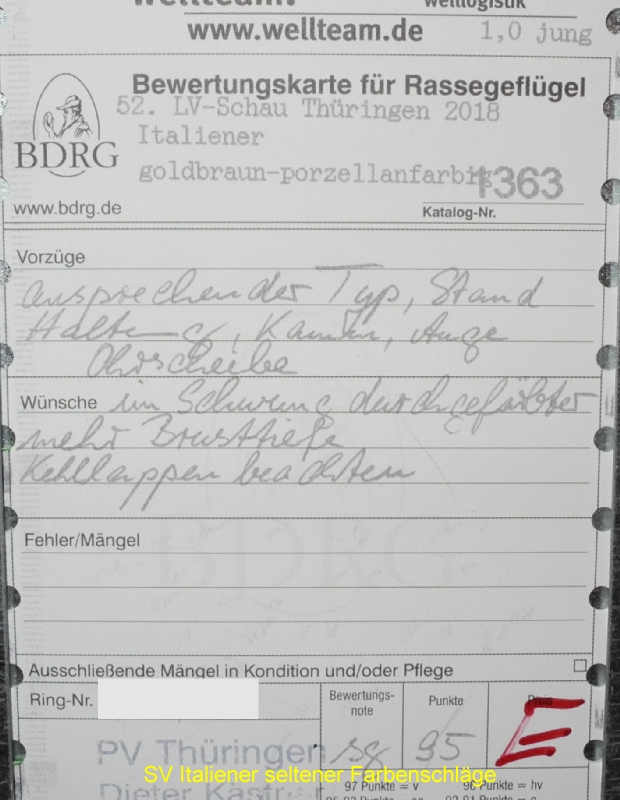 www.wellteam.de
1,0 jung
Bewertungskarte für Rassegeflügel
52. LV-Schau Thüringen 2018
Italiener
BDRG
goldbraun-porzellanfarbig
1363
www.bdrg.de
Katalog-Nr.
Vorzüge
ansprechender Typ, Stand
Haltung, Kamm, Auge
Ohrscheibe
Wünsche im Schwung durchgefärbter
mehr Brusttiefe
Kehllappen beachten
Fehler/Mängel
Ausschließende Mängel in Kondition und/oder Pflege
Ring-Nr.
Bewertungs-
note
Punkte
Preis
sg 95 E
PV Thüringen
SV Italiener seltener Farbenschläge
97 Punkte = v 96 Punkte = hv